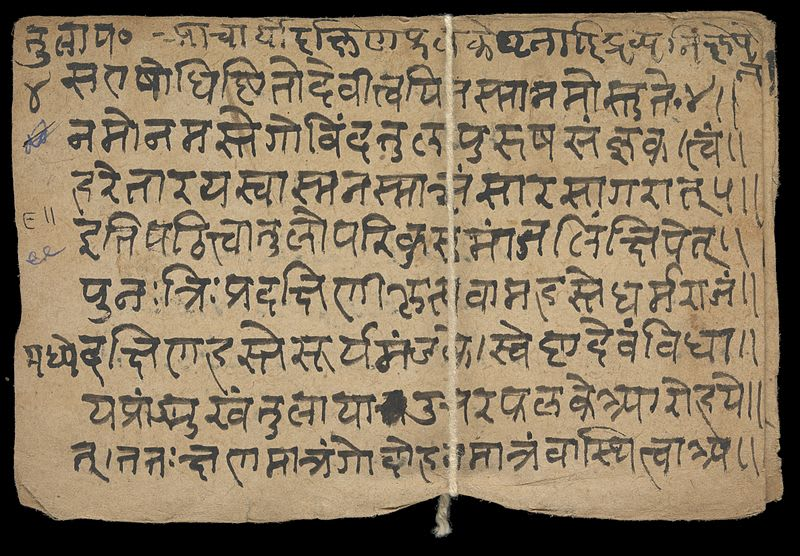 तुलाप० आचार्यादक्षिणफलके धनादिद्रव्यनिक्षेपे
४ सतषोधिष्ठितोदेवीत्वयि तस्मान्नमोस्तुते.४॥
नमोनमस्तेगोविंदतुलापुरुषसंज्ञक।त्वं॥
हरेतारयस्वास्मानस्मात्संसारसागरात्५॥
इतिपठित्वातुलोपरिकुसुमांजलिंक्षिपेत्॥
पुनःत्रिःप्रदक्षिणीकृत्यवामहस्तेधर्मराजं॥
मध्ये दक्षिणहस्तेसूर्यमंडले।स्वेष्टदेवंविधा॥
यप्राङ्मुखंतुलाया उत्तरफलकेआरोहये॥
त्।ततःक्षणमात्रंगोदोहनमात्रंवास्थित्वाअप॥